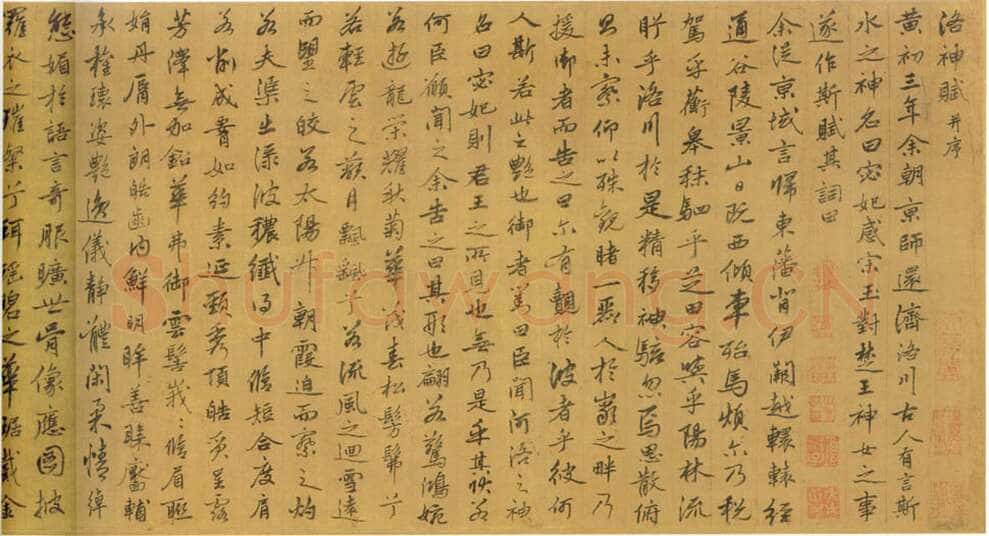 洛神賦 并序
黃初三年余朝京師還濟洛川古人有言斯
水之神名曰宓妃感宋玉對楚王神女之事
遂作斯賦其詞曰
余從京域言歸東藩背伊闕越轘轅經
通谷陵景山日既西傾車殆馬煩尔乃稅
駕乎蘅皋秣駟乎芝田容與乎陽林流
盻乎洛川於是精移神駭忽焉思散俯
則未察仰以殊觀睹一麗人於巖之畔乃
援御者而告之曰尔有覿於彼者乎彼何
人斯若此之艷也御者對曰臣聞河洛之神
名曰宓妃則君王之所見也無乃是乎其狀若
何臣願聞之余告之曰其形也翩若驚鴻婉
若遊龍榮耀秋菊華茂春松髣髴兮
若輕雲之蔽月飄颻兮若流風之迴雪遠
而望之皎若太陽升朝霞迫而察之灼
若夫渠出淥波穠纖得中脩短合度肩
若削成腰如約素延頸秀項皓質呈露
芳澤無加鉛華弗御雲髻峩〻脩眉聯
娟丹脣外朗皓齒內鮮明眸善睞靨輔
承權瓌姿艷逸儀靜體閑柔情綽
態媚於語言奇服曠世骨像應圖披
羅衣之璀粲兮珥瑤碧之華琚戴金
Shufawang.CN